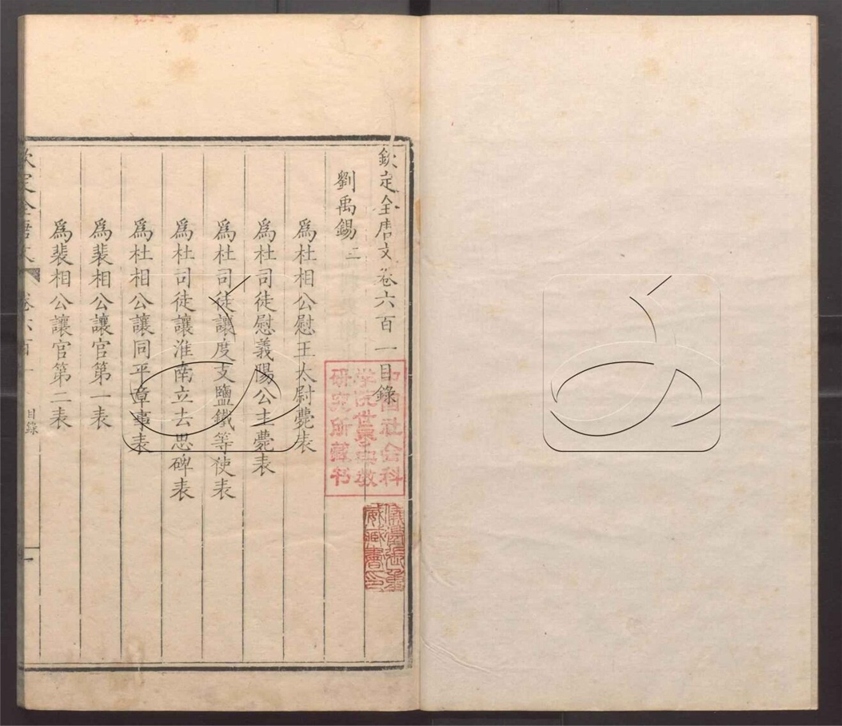 欽定全唐文卷六百一目錄
劉禹錫三
爲杜相公慰王太尉薨表
爲杜司徒慰義陽公主薨表
爲杜司徒讓度支鹽鐵等使表
爲杜司徒讓淮南立去思碑表
爲杜相公讓同平章事表
爲裴相公讓官第一表
爲裴相公讓官第二表
欽定全唐文
卷六百一
目錄
一
中国社会科
学院世界宗教
研究所藏书